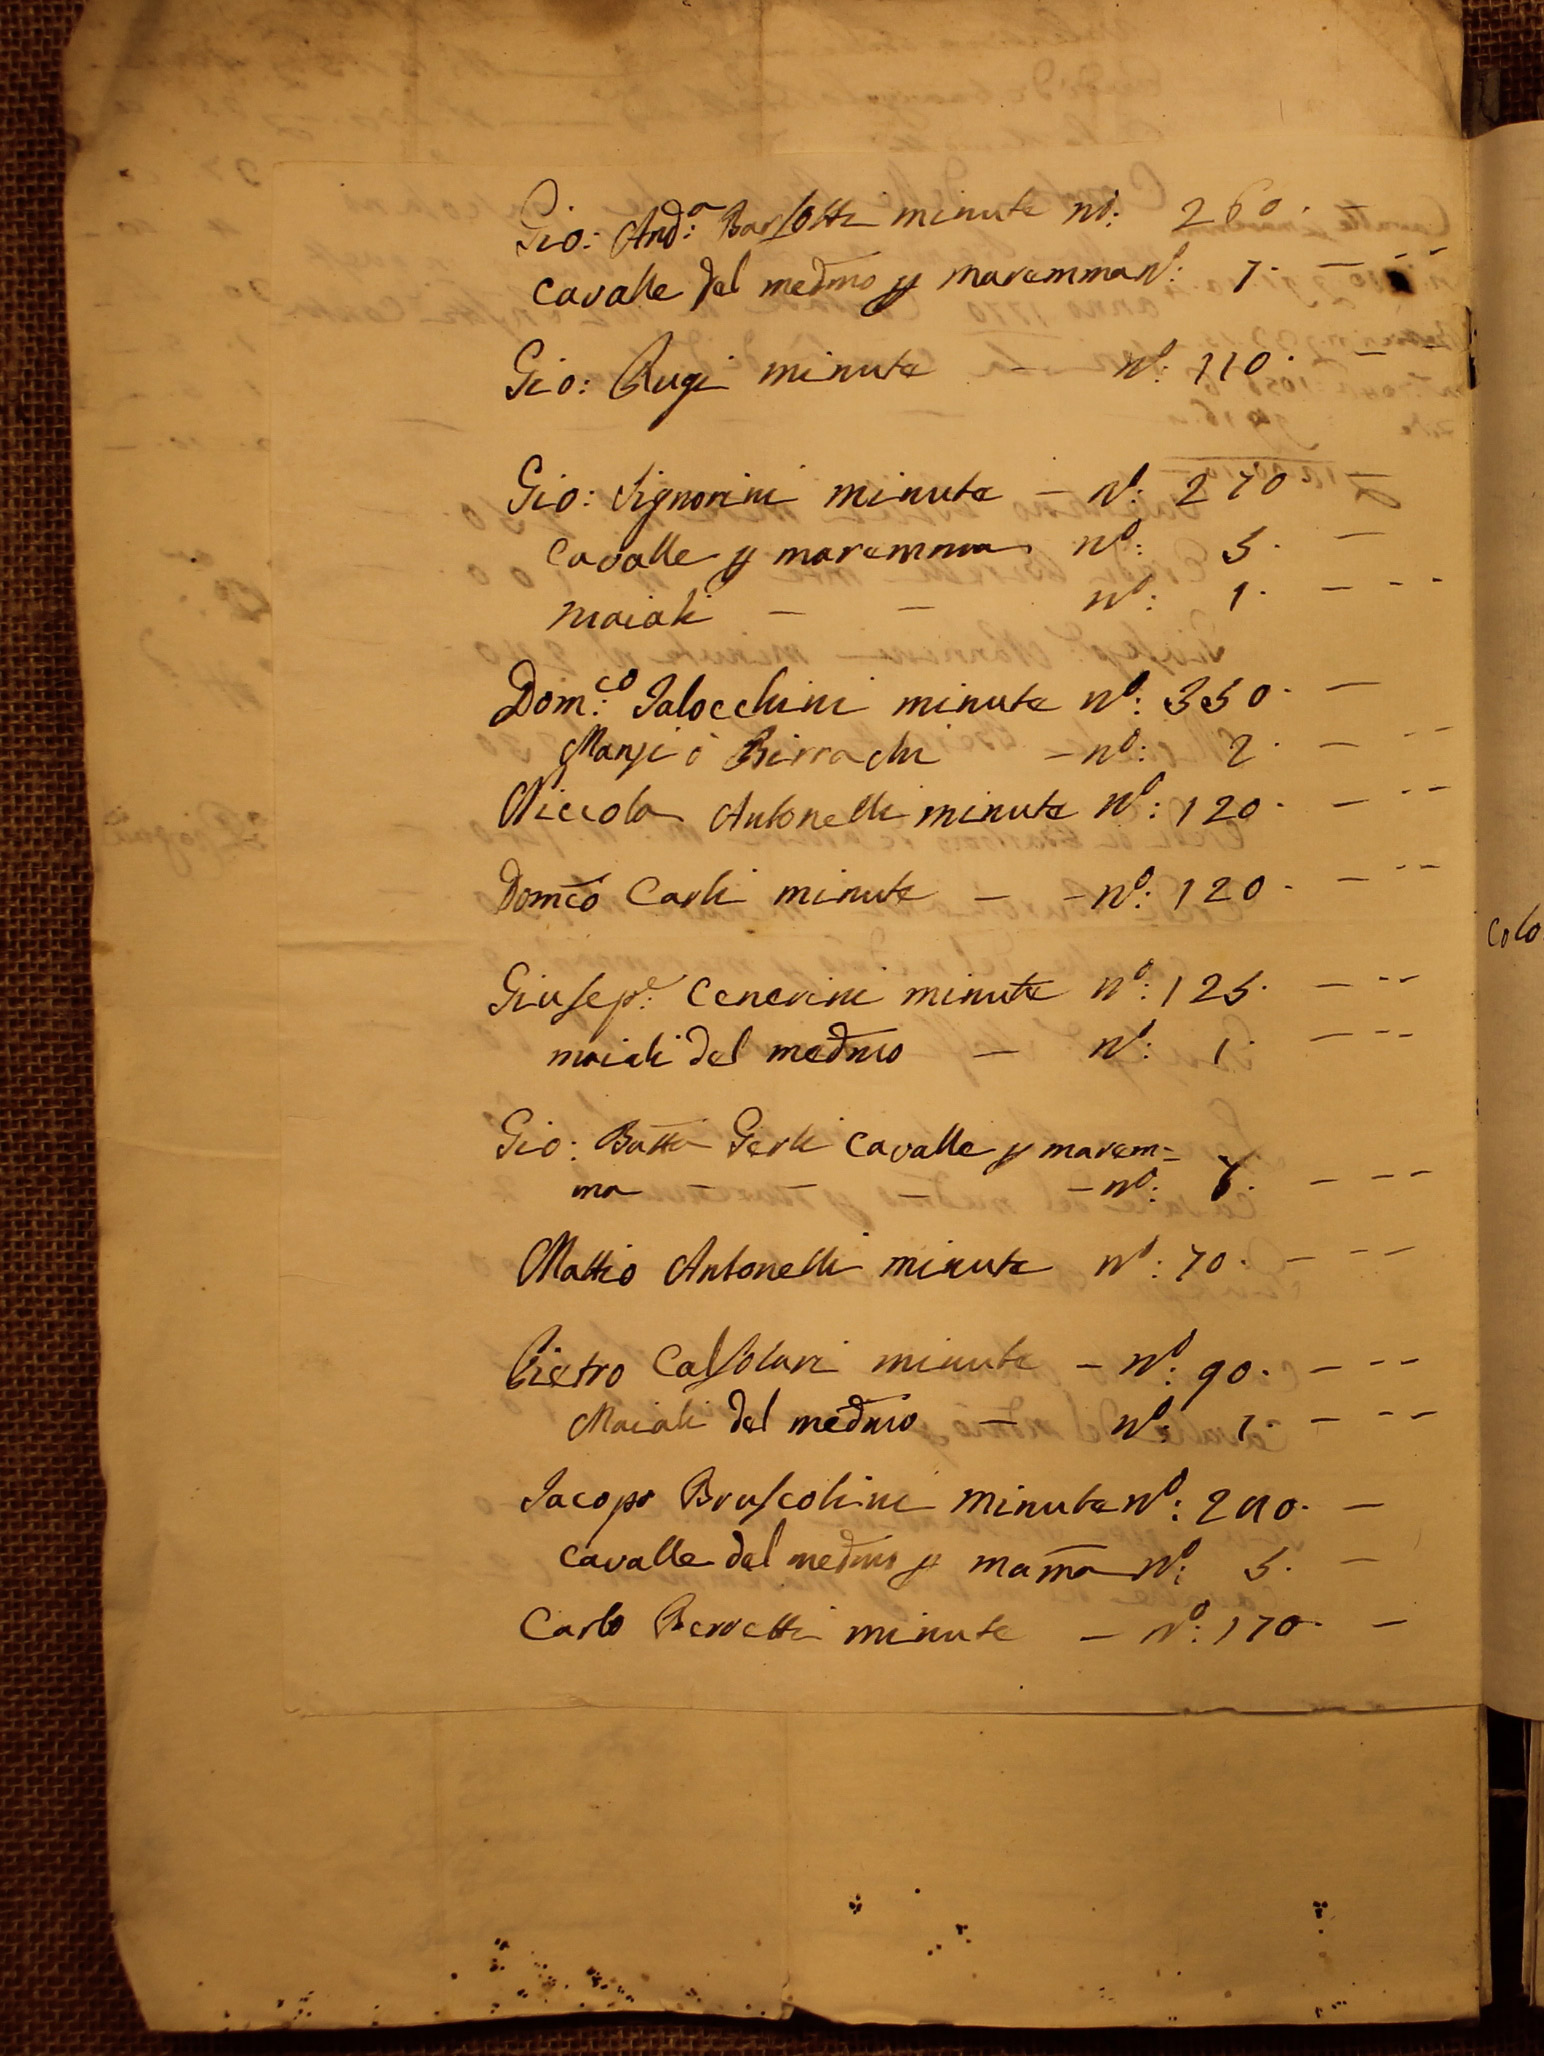 Gio: And:ᵃ Barsotti minute nº: 260.
Cavalle del medmo p maremma nº: 7. — - -
Gio: Rugi minute - nº: 110. — -
Gio: Signorini minute — nº: 270 —
Cavalle p maremma nº: 5. —
maiali — — nº: 1. — - -
Dom:ᶜᵒ Jalocchini minute nº: 350. —
Manzi ò Birrachi — nº: 2. — - -
Niccola Antonelli minute nº: 120. — - -
Domco Carli minute — - nº: 120. — - -
Giusepᵉ: Cenerini minute nº: 125. — - -
maiali del medmo — nº: 1. — - -
Gio: Batta Gerli Cavalle p marem=
ma — — — - nº: 8. — - -
Mattio Antonelli minute nº: 70. — - -
Pietro Calsolari minute — nº: 90. — - -
Maiali del medmo — nº: 1. — - -
Jacopo Bruscolini minute nº: 200. —
Cavalle del medmo p mamma nº: 5. —
Carlo Berretti minute — nº: 170. —
Colo